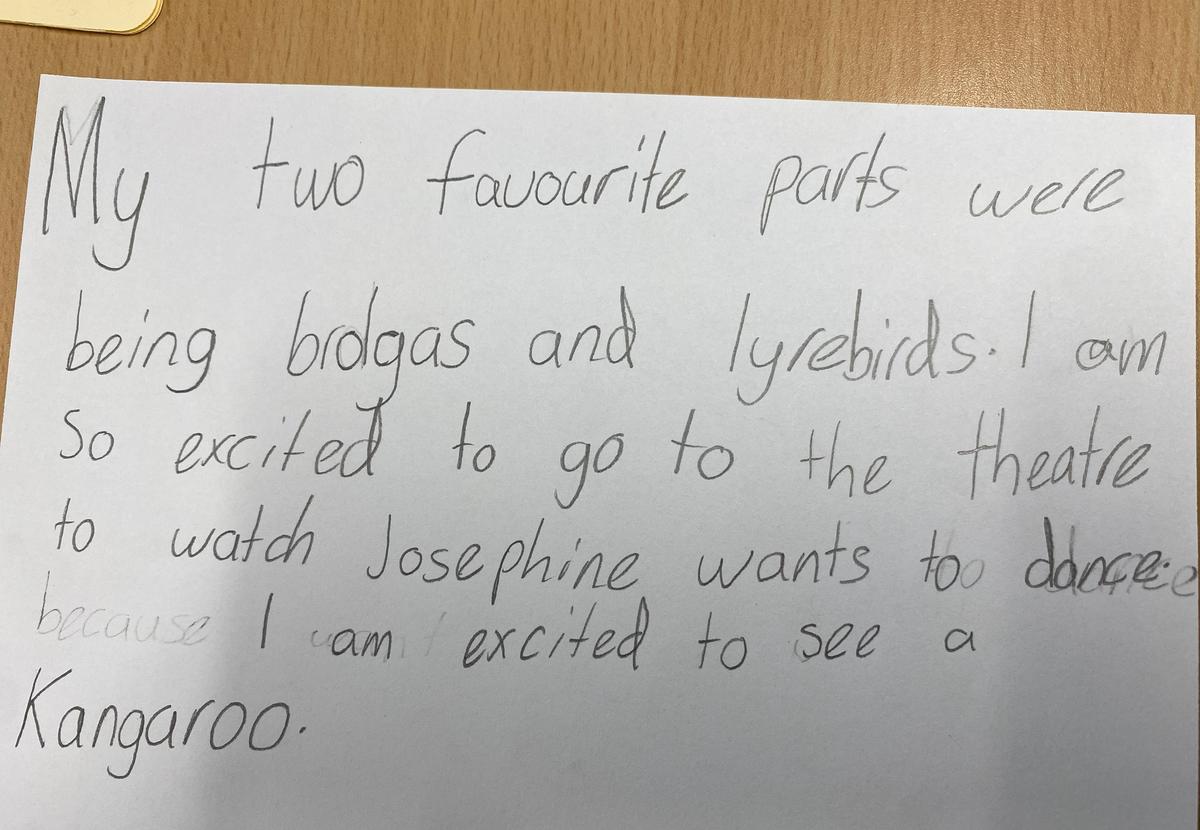 My two favourite parts were
being brolgas and lyrebirds. I am
So excited to go to the theatre
to watch Josephine wants to dance.
because I am excited to see a
Kangaroo.